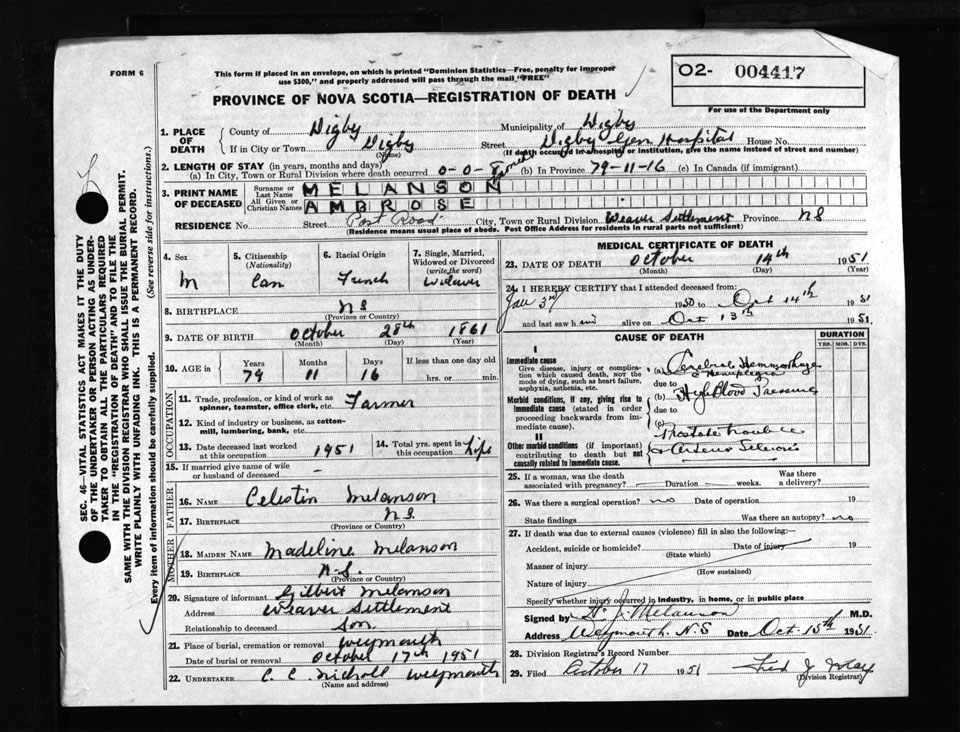 FORM 6
This form if placed in an envelope, on which is printed "Dominion Statistics—Free, penalty for improper
use $300," and properly addressed will pass through the mail, "FREE"
02- 004417
For use of the Department only
PROVINCE OF NOVA SCOTIA—REGISTRATION OF DEATH
SEC. 46—VITAL STATISTICS ACT MAKES IT THE DUTY
OF THE UNDERTAKER OR PERSON ACTING AS UNDER-
TAKER TO OBTAIN ALL THE PARTICULARS REQUIRED
IN THE "REGISTRATION OF DEATH" AND TO FILE THE
SAME WITH THE DIVISION REGISTRAR WHO SHALL ISSUE THE BURIAL PERMIT.
WRITE PLAINLY WITH UNFADING INK. THIS IS A PERMANENT RECORD.
Every item of information should be carefully supplied. (See reverse side for instructions.)
1. PLACE OF DEATH
County of Digby Municipality of Digby
If in City or Town Digby (Name) Street Digby Gen Hospital House No.
(If death occurred in a hospital or institution, give the name instead of street and number)
2. LENGTH OF STAY (in years, months and days)
(a) In City, Town or Rural Division where death occurred 0-0- (b) In Province 79-11-16 (c) In Canada (if immigrant)
3. PRINT NAME OF DECEASED
Surname or Last Name MELANSON
All Given or Christian Names AMBROSE
RESIDENCE No. Street Post Road City, Town or Rural Division Weaver Settlement Province NS
(Residence means usual place of abode. Post Office Address for residents in rural parts not sufficient)
4. Sex M
5. Citizenship (Nationality) Can
6. Racial Origin French
7. Single, Married, Widowed or Divorced (write the word) Widower
8. BIRTHPLACE NS
(Province or Country)
9. DATE OF BIRTH October 28th 1861
(Month) (Day) (Year)
10. AGE in Years Months Days If less than one day old
79 11 16 hrs. or min.
OCCUPATION
11. Trade, profession, or kind of work as spinner, teamster, office clerk, etc. Farmer
12. Kind of industry or business, as cotton-mill, lumbering, bank, etc.
13. Date deceased last worked at this occupation 1951
14. Total yrs. spent in this occupation Life
15. If married give name of wife or husband of deceased -
FATHER
16. NAME Celestin Melanson
17. BIRTHPLACE N.S.
(Province or Country)
MOTHER
18. MAIDEN NAME Madeline Melanson
19. BIRTHPLACE N.S.
(Province or Country)
20. Signature of informant Gilbert Melanson
Address Weaver Settlement
Relationship to deceased Son
21. Place of burial, cremation or removal Weymouth
Date of burial or removal October 17th 1951
22. UNDERTAKER C. C. Nicholl Weymouth
(Name and address)
MEDICAL CERTIFICATE OF DEATH
23. DATE OF DEATH October 14th 1951
(Month) (Day) (Year)
24. I HEREBY CERTIFY that I attended deceased from:
Jan 3rd 1950 to Oct 14th 1951
and last saw him alive on Oct 13th 1951.
CAUSE OF DEATH
DURATION
YRS. MOS. DYS.
I
Immediate cause
Give disease, injury or complication which caused death, not the mode of dying, such as heart failure, asphyxia, asthenia, etc.
(a) Cerebral Hemmorhage
Hemiplegia
due to
Morbid conditions, if any, giving rise to immediate cause (stated in order proceeding backwards from immediate cause).
(b) High Blood Pressure
due to
(c)
II
Other morbid conditions (if important) contributing to death but not causally related to immediate cause.
Prostate trouble
& Arterio
25. If a woman, was the death associated with pregnancy? Duration weeks. Was there a delivery?
26. Was there a surgical operation? no Date of operation 19
State findings Was there an autopsy? no
27. If death was due to external causes (violence) fill in also the following:
Accident, suicide or homicide? Date of injury 19
(State which)
Manner of injury
(How sustained)
Nature of injury
Specify whether injury occurred in industry, in home, or in public place
Signed by H. J. Melanson M.D.
Address Weymouth. N.S Date Oct 15th 1951.
28. Division Registrar's Record Number
29. Filed October 17 1951 Fred J
(Division Registrar)